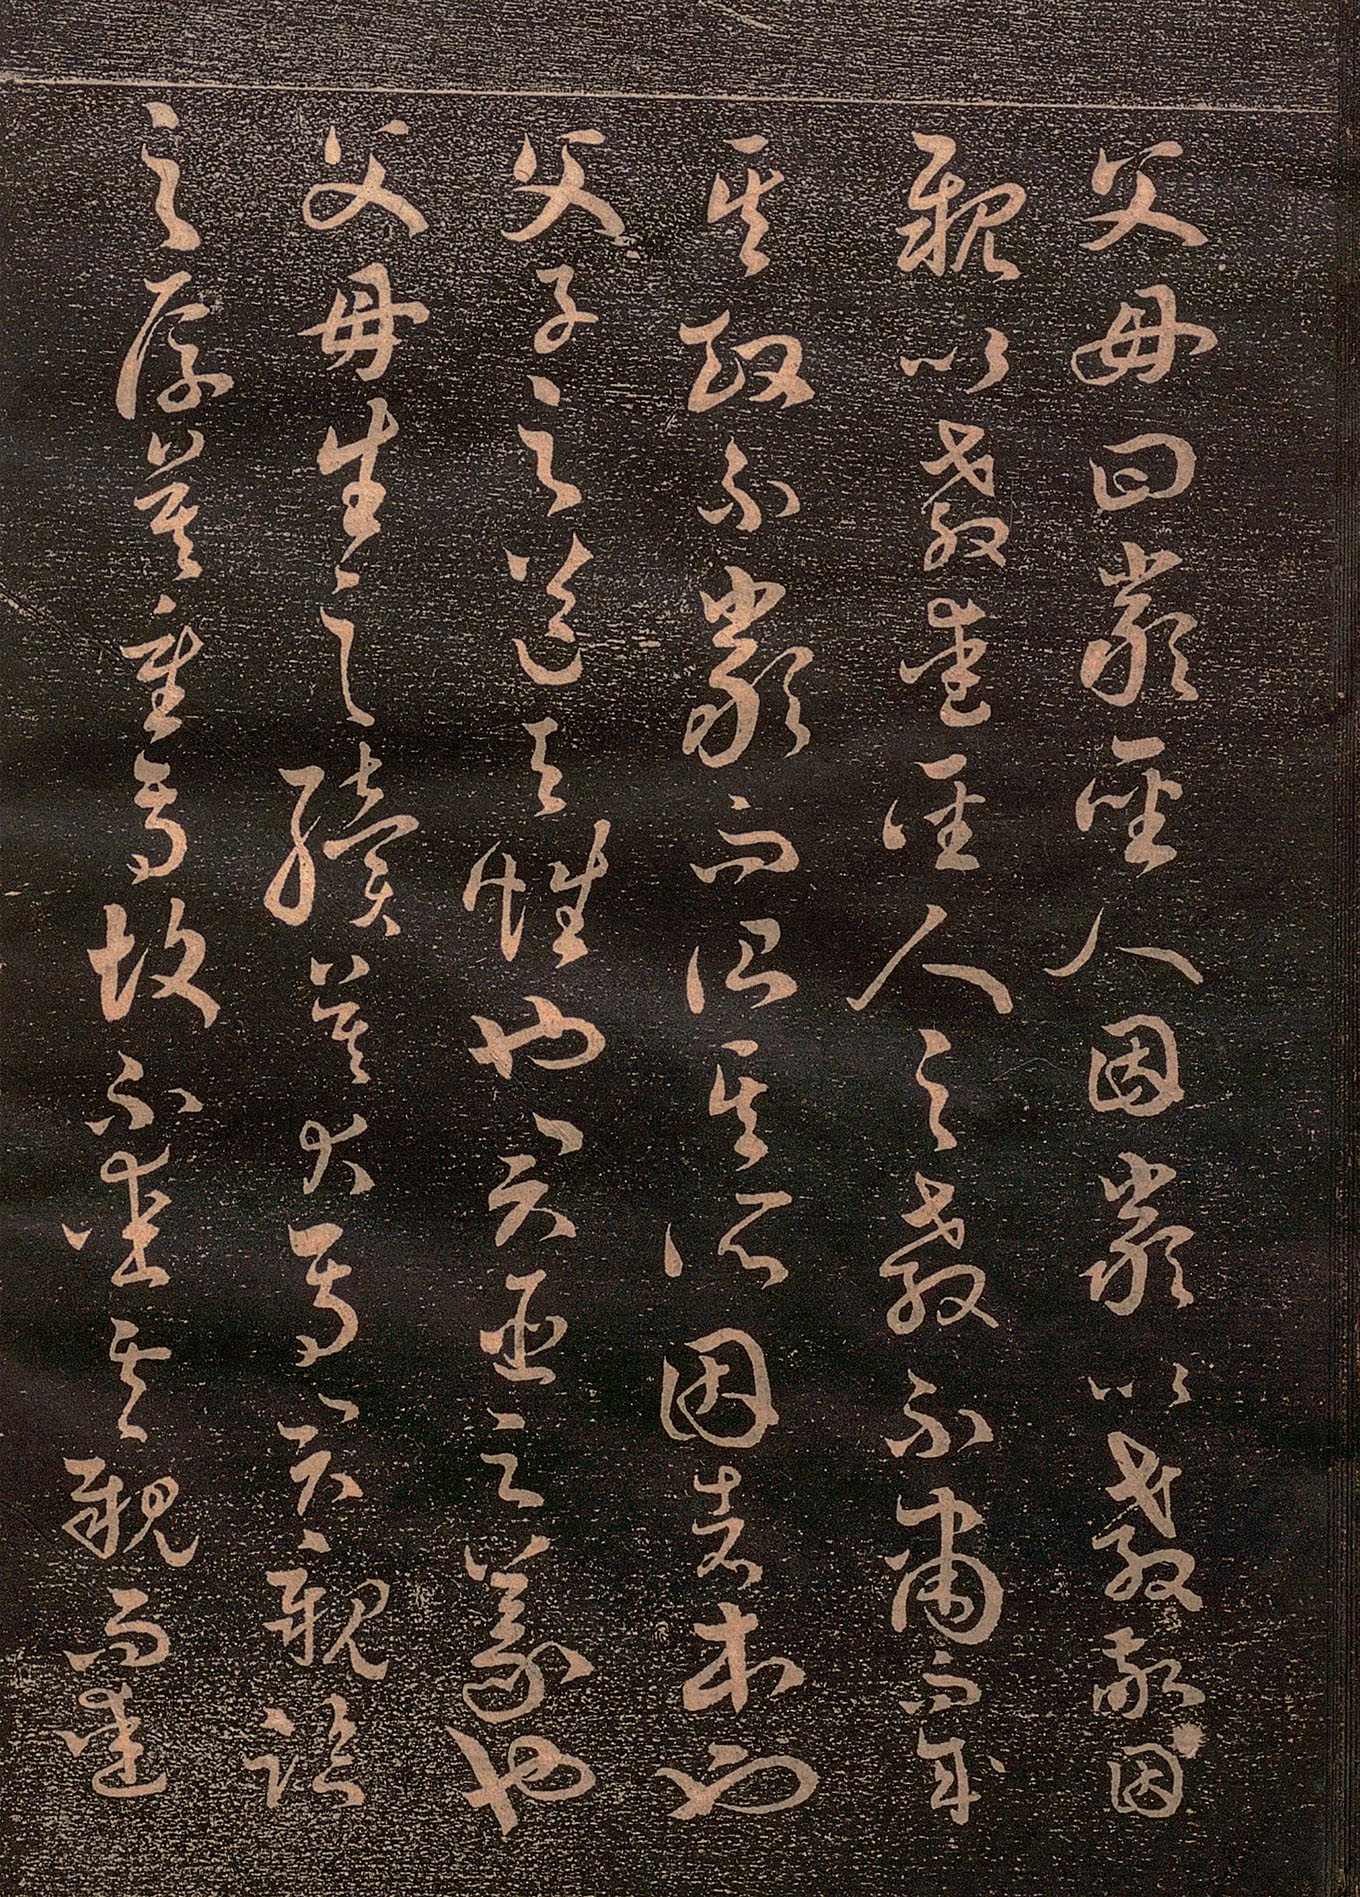 父母日嚴聖人因嚴以教敬因
親以教愛聖人之教不肅而成
其政不嚴而治其所因者本也
父子之道天性也君臣之義也
父母生之續莫大焉君親臨
之厚莫重焉故不愛其親而愛